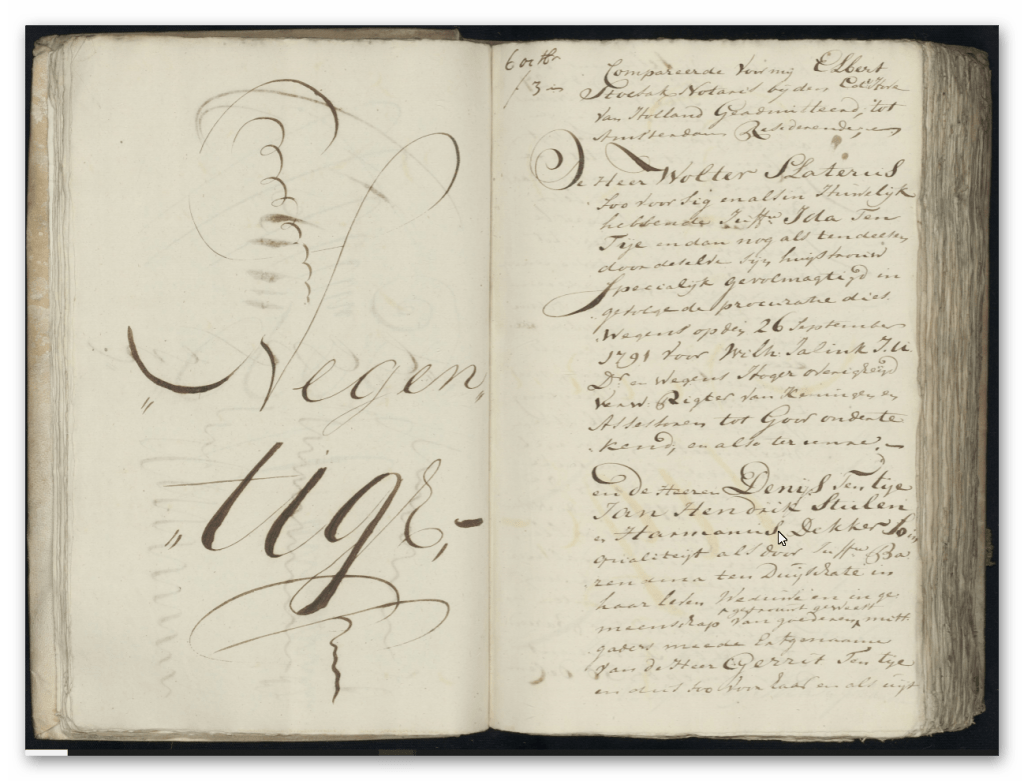 "Negen"
"tig
6 octbr
/3
Compareerde voor mij Elbert
Stoesak Notaris by den
van Holland Geadmitteerd, tot
Amsterdam Resideerende,
De Heer Wolter Slaterus
soo voor sig en als in Huwelijk
hebbende Juffw Ida Ten
Tije en dan nog als ten deesen
door deselve syn huijsvrouw
specialijk gevolmagtigd in
gevolge de procuratie dies
wegens op den 26 September
1791 voor Wilh. Jalink
Dr en wegens Hoger overigheijd
Verw. Rigter van Keningen en
Assessoren tot Goor onderte
kend, en also ter eenre.
en de Heeren Denijs Ten tije
Jan Hendrik Stulen
en Harmanus Dekker
qualiteijt als door Juffw Ba
rendina ten Duijskate in
haar leven Weduwe en in ge
getrouwt geweest
meenschap van goederen mits
gaders meede Erfgenaame
van de Heer Gerrit Ten tije
en dus soo voor haar en als uijt